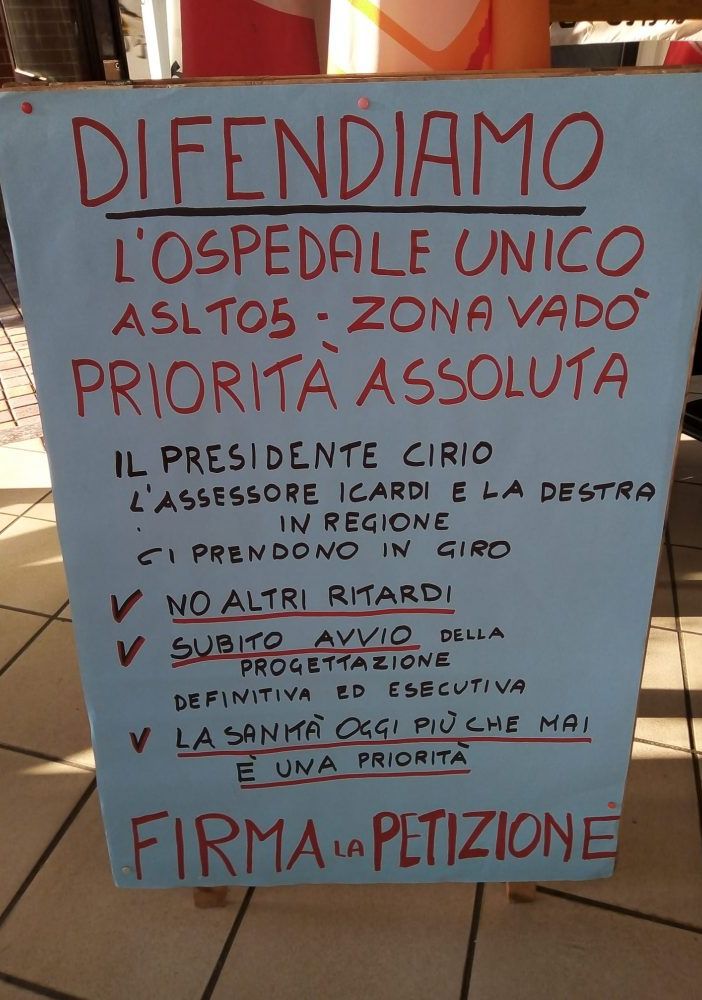 DIFENDIAMO
L'OSPEDALE UNICO
ASLTO5 - ZONA VADO'
PRIORITÀ ASSOLUTA
IL PRESIDENTE CIRIO
L'ASSESSORE ICARDI E LA DESTRA
IN REGIONE
CI PRENDONO IN GIRO
✓ NO ALTRI RITARDI
✓ SUBITO AVVIO DELLA
PROGETTAZIONE
DEFINITIVA ED ESECUTIVA
✓ LA SANITÀ OGGI PIÙ CHE MAI
È UNA PRIORITÀ
FIRMA LA PETIZIONE